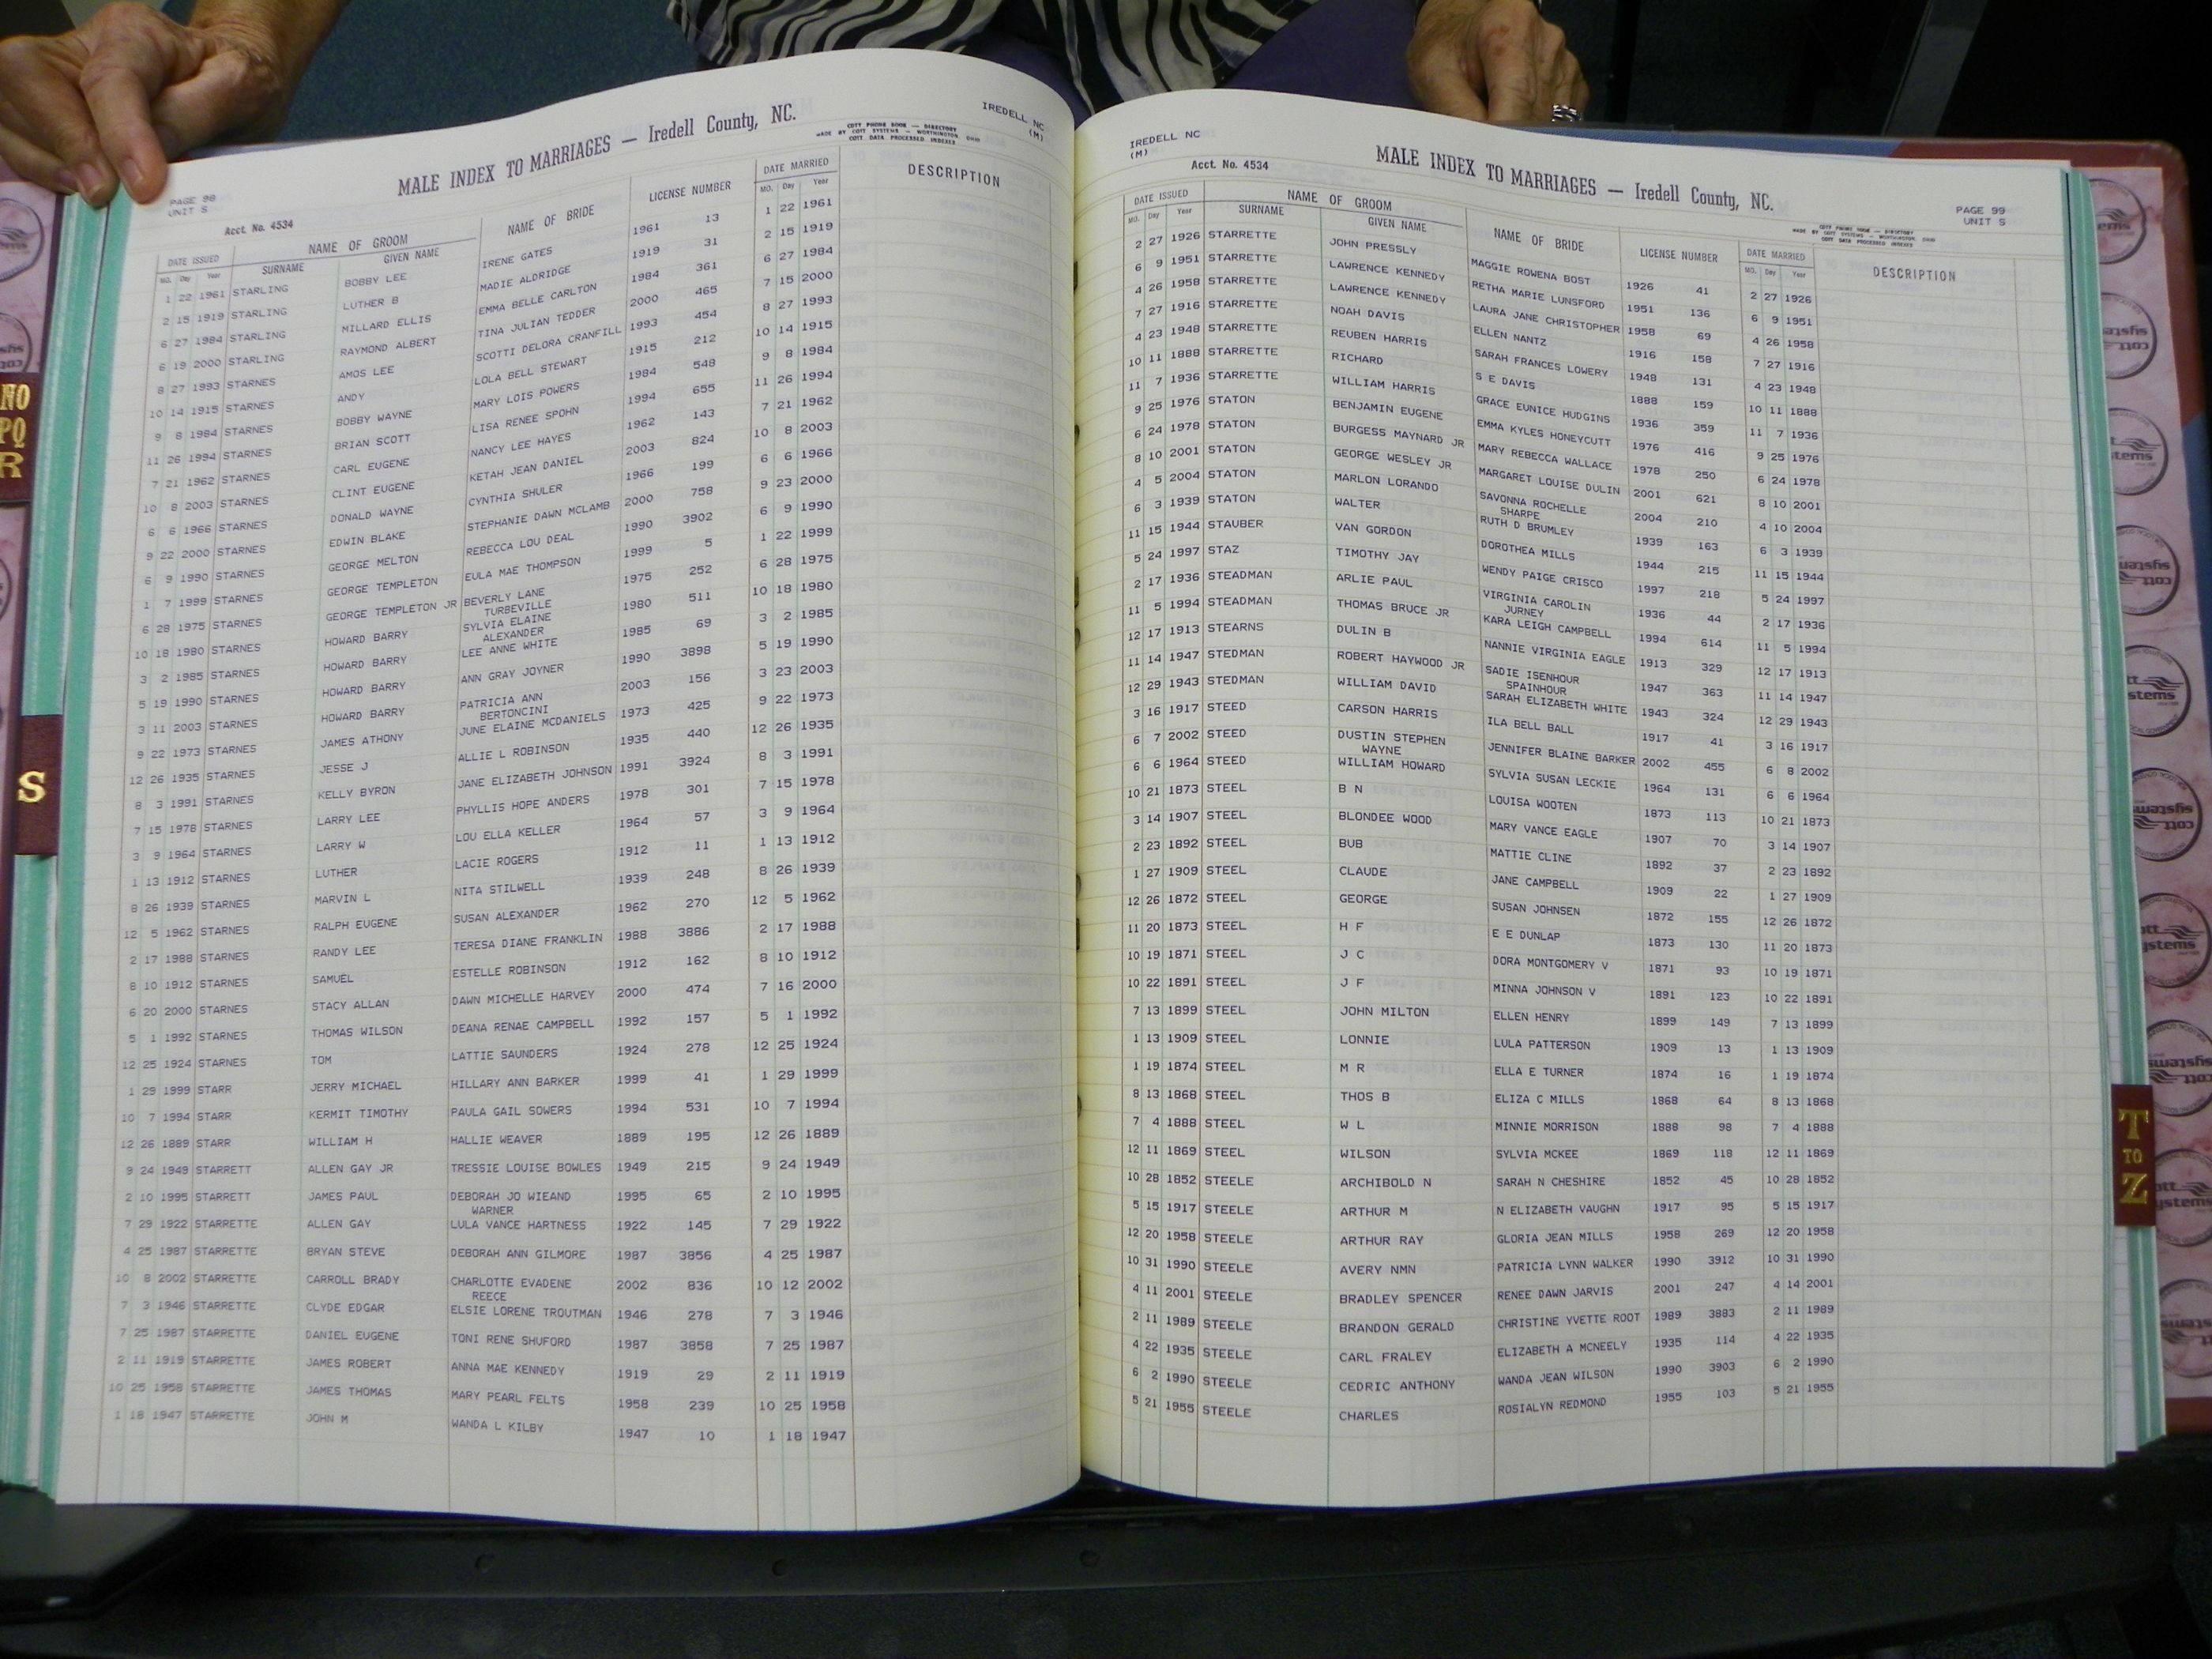 IREDELL NC
(M)
MALE INDEX TO MARRIAGES — Iredell County, NC.
COTT PHONE BOOK — DIRECTORY
MADE BY COTT SYSTEMS — WORTHINGTON, OHIO
COTT DATA PROCESSED INDEXES
PAGE 98
UNIT S
Acct. No. 4534
DATE ISSUED NAME OF GROOM NAME OF BRIDE LICENSE NUMBER DATE MARRIED DESCRIPTION
MO. Day Year SURNAME GIVEN NAME MO. Day Year
1 22 1961 STARLING BOBBY LEE IRENE GATES 1961 13 1 22 1961
2 15 1919 STARLING LUTHER B MADIE ALDRIDGE 1919 31 2 15 1919
6 27 1984 STARLING MILLARD ELLIS EMMA BELLE CARLTON 1984 361 6 27 1984
6 19 2000 STARLING RAYMOND ALBERT TINA JULIAN TEDDER 2000 465 7 15 2000
8 27 1993 STARNES AMOS LEE SCOTTI DELORA CRANFILL 1993 454 8 27 1993
10 14 1915 STARNES ANDY LOLA BELL STEWART 1915 212 10 14 1915
9 8 1984 STARNES BOBBY WAYNE MARY LOIS POWERS 1984 548 9 8 1984
11 26 1994 STARNES BRIAN SCOTT LISA RENEE SPOHN 1994 655 11 26 1994
7 21 1962 STARNES CARL EUGENE NANCY LEE HAYES 1962 143 7 21 1962
10 8 2003 STARNES CLINT EUGENE KETAH JEAN DANIEL 2003 824 10 8 2003
6 6 1966 STARNES DONALD WAYNE CYNTHIA SHULER 1966 199 6 6 1966
9 22 2000 STARNES EDWIN BLAKE STEPHANIE DAWN MCLAMB 2000 758 9 23 2000
6 9 1990 STARNES GEORGE MELTON REBECCA LOU DEAL 1990 3902 6 9 1990
1 7 1999 STARNES GEORGE TEMPLETON EULA MAE THOMPSON 1999 5 1 22 1999
6 28 1975 STARNES GEORGE TEMPLETON JR BEVERLY LANE 1975 252 6 28 1975
TURBEVILLE
10 18 1980 STARNES HOWARD BARRY SYLVIA ELAINE 1980 511 10 18 1980
ALEXANDER
3 2 1985 STARNES HOWARD BARRY LEE ANNE WHITE 1985 69 3 2 1985
5 19 1990 STARNES HOWARD BARRY ANN GRAY JOYNER 1990 3898 5 19 1990
3 11 2003 STARNES HOWARD BARRY PATRICIA ANN 2003 156 3 23 2003
BERTONCINI
9 22 1973 STARNES JAMES ATHONY JUNE ELAINE MCDANIELS 1973 425 9 22 1973
12 26 1935 STARNES JESSE J ALLIE L ROBINSON 1935 440 12 26 1935
8 3 1991 STARNES KELLY BYRON JANE ELIZABETH JOHNSON 1991 3924 8 3 1991
7 15 1978 STARNES LARRY LEE PHYLLIS HOPE ANDERS 1978 301 7 15 1978
3 9 1964 STARNES LARRY W LOU ELLA KELLER 1964 57 3 9 1964
1 13 1912 STARNES LUTHER LACIE ROGERS 1912 11 1 13 1912
8 26 1939 STARNES MARVIN L NITA STILWELL 1939 248 8 26 1939
12 5 1962 STARNES RALPH EUGENE SUSAN ALEXANDER 1962 270 12 5 1962
2 17 1988 STARNES RANDY LEE TERESA DIANE FRANKLIN 1988 3886 2 17 1988
8 10 1912 STARNES SAMUEL ESTELLE ROBINSON 1912 162 8 10 1912
6 20 2000 STARNES STACY ALLAN DAWN MICHELLE HARVEY 2000 474 7 16 2000
5 1 1992 STARNES THOMAS WILSON DEANA RENAE CAMPBELL 1992 157 5 1 1992
12 25 1924 STARNES TOM LATTIE SAUNDERS 1924 278 12 25 1924
1 29 1999 STARR JERRY MICHAEL HILLARY ANN BARKER 1999 41 1 29 1999
10 7 1994 STARR KERMIT TIMOTHY PAULA GAIL SOWERS 1994 531 10 7 1994
12 26 1889 STARR WILLIAM H HALLIE WEAVER 1889 195 12 26 1889
9 24 1949 STARRETT ALLEN GAY JR TRESSIE LOUISE BOWLES 1949 215 9 24 1949
2 10 1995 STARRETT JAMES PAUL DEBORAH JO WIEAND 1995 65 2 10 1995
WARNER
7 29 1922 STARRETTE ALLEN GAY LULA VANCE HARTNESS 1922 145 7 29 1922
4 25 1987 STARRETTE BRYAN STEVE DEBORAH ANN GILMORE 1987 3856 4 25 1987
10 8 2002 STARRETTE CARROLL BRADY CHARLOTTE EVADENE 2002 836 10 12 2002
REECE
7 3 1946 STARRETTE CLYDE EDGAR ELSIE LORENE TROUTMAN 1946 278 7 3 1946
7 25 1987 STARRETTE DANIEL EUGENE TONI RENE SHUFORD 1987 3858 7 25 1987
2 11 1919 STARRETTE JAMES ROBERT ANNA MAE KENNEDY 1919 29 2 11 1919
10 25 1958 STARRETTE JAMES THOMAS MARY PEARL FELTS 1958 239 10 25 1958
1 18 1947 STARRETTE JOHN M WANDA L KILBY 1947 10 1 18 1947
IREDELL NC
(M)
Acct. No. 4534
MALE INDEX TO MARRIAGES — Iredell County, NC.
PAGE 99
UNIT S
MADE BY COTT SYSTEMS — WORTHINGTON, OHIO
COTT DATA PROCESSED INDEXES
DATE ISSUED NAME OF GROOM NAME OF BRIDE LICENSE NUMBER DATE MARRIED DESCRIPTION
MO. Day Year SURNAME GIVEN NAME MO. Day Year
2 27 1926 STARRETTE JOHN PRESSLY MAGGIE ROWENA BOST 1926 41 2 27 1926
6 9 1951 STARRETTE LAWRENCE KENNEDY RETHA MARIE LUNSFORD 1951 136 6 9 1951
4 26 1958 STARRETTE LAWRENCE KENNEDY LAURA JANE CHRISTOPHER 1958 69 4 26 1958
7 27 1916 STARRETTE NOAH DAVIS ELLEN NANTZ 1916 158 7 27 1916
4 23 1948 STARRETTE REUBEN HARRIS SARAH FRANCES LOWERY 1948 131 4 23 1948
10 11 1888 STARRETTE RICHARD S E DAVIS 1888 159 10 11 1888
11 7 1936 STARRETTE WILLIAM HARRIS GRACE EUNICE HUDGINS 1936 359 11 7 1936
9 25 1976 STATON BENJAMIN EUGENE EMMA KYLES HONEYCUTT 1976 416 9 25 1976
6 24 1978 STATON BURGESS MAYNARD JR MARY REBECCA WALLACE 1978 250 6 24 1978
8 10 2001 STATON GEORGE WESLEY JR MARGARET LOUISE DULIN 2001 621 8 10 2001
4 5 2004 STATON MARLON LORANDO SAVONNA ROCHELLE 2004 210 4 10 2004
SHARPE
6 3 1939 STATON WALTER RUTH D BRUMLEY 1939 163 6 3 1939
11 15 1944 STAUBER VAN GORDON DOROTHEA MILLS 1944 215 11 15 1944
5 24 1997 STAZ TIMOTHY JAY WENDY PAIGE CRISCO 1997 218 5 24 1997
2 17 1936 STEADMAN ARLIE PAUL VIRGINIA CAROLIN 1936 44 2 17 1936
JURNEY
11 5 1994 STEADMAN THOMAS BRUCE JR KARA LEIGH CAMPBELL 1994 614 11 5 1994
12 17 1913 STEARNS DULIN B NANNIE VIRGINIA EAGLE 1913 329 12 17 1913
11 14 1947 STEDMAN ROBERT HAYWOOD JR SADIE ISENHOUR 1947 363 11 14 1947
SPAINHOUR
12 29 1943 STEDMAN WILLIAM DAVID SARAH ELIZABETH WHITE 1943 324 12 29 1943
3 16 1917 STEED CARSON HARRIS ILA BELL BALL 1917 41 3 16 1917
6 7 2002 STEED DUSTIN STEPHEN JENNIFER BLAINE BARKER 2002 455 6 8 2002
WAYNE
6 6 1964 STEED WILLIAM HOWARD SYLVIA SUSAN LECKIE 1964 131 6 6 1964
10 21 1873 STEEL B N LOUISA WOOTEN 1873 113 10 21 1873
3 14 1907 STEEL BLONDEE WOOD MARY VANCE EAGLE 1907 70 3 14 1907
2 23 1892 STEEL BUB MATTIE CLINE 1892 37 2 23 1892
1 27 1909 STEEL CLAUDE JANE CAMPBELL 1909 22 1 27 1909
12 26 1872 STEEL GEORGE SUSAN JOHNSEN 1872 155 12 26 1872
11 20 1873 STEEL H F E E DUNLAP 1873 130 11 20 1873
10 19 1871 STEEL J C DORA MONTGOMERY V 1871 93 10 19 1871
10 22 1891 STEEL J F MINNA JOHNSON V 1891 123 10 22 1891
7 13 1899 STEEL JOHN MILTON ELLEN HENRY 1899 149 7 13 1899
1 13 1909 STEEL LONNIE LULA PATTERSON 1909 13 1 13 1909
1 19 1874 STEEL M R ELLA E TURNER 1874 16 1 19 1874
8 13 1868 STEEL THOS B ELIZA C MILLS 1868 64 8 13 1868
7 4 1888 STEEL W L MINNIE MORRISON 1888 98 7 4 1888
12 11 1869 STEEL WILSON SYLVIA MCKEE 1869 118 12 11 1869
10 28 1852 STEELE ARCHIBOLD N SARAH N CHESHIRE 1852 45 10 28 1852
5 15 1917 STEELE ARTHUR M N ELIZABETH VAUGHN 1917 95 5 15 1917
12 20 1958 STEELE ARTHUR RAY GLORIA JEAN MILLS 1958 269 12 20 1958
10 31 1990 STEELE AVERY NMN PATRICIA LYNN WALKER 1990 3912 10 31 1990
4 11 2001 STEELE BRADLEY SPENCER RENEE DAWN JARVIS 2001 247 4 14 2001
2 11 1989 STEELE BRANDON GERALD CHRISTINE YVETTE ROOT 1989 3883 2 11 1989
4 22 1935 STEELE CARL FRALEY ELIZABETH A MCNEELY 1935 114 4 22 1935
6 2 1990 STEELE CEDRIC ANTHONY WANDA JEAN WILSON 1990 3903 6 2 1990
5 21 1955 STEELE CHARLES ROSIALYN REDMOND 1955 103 5 21 1955
NO
PQ
R
S
T
TO
Z